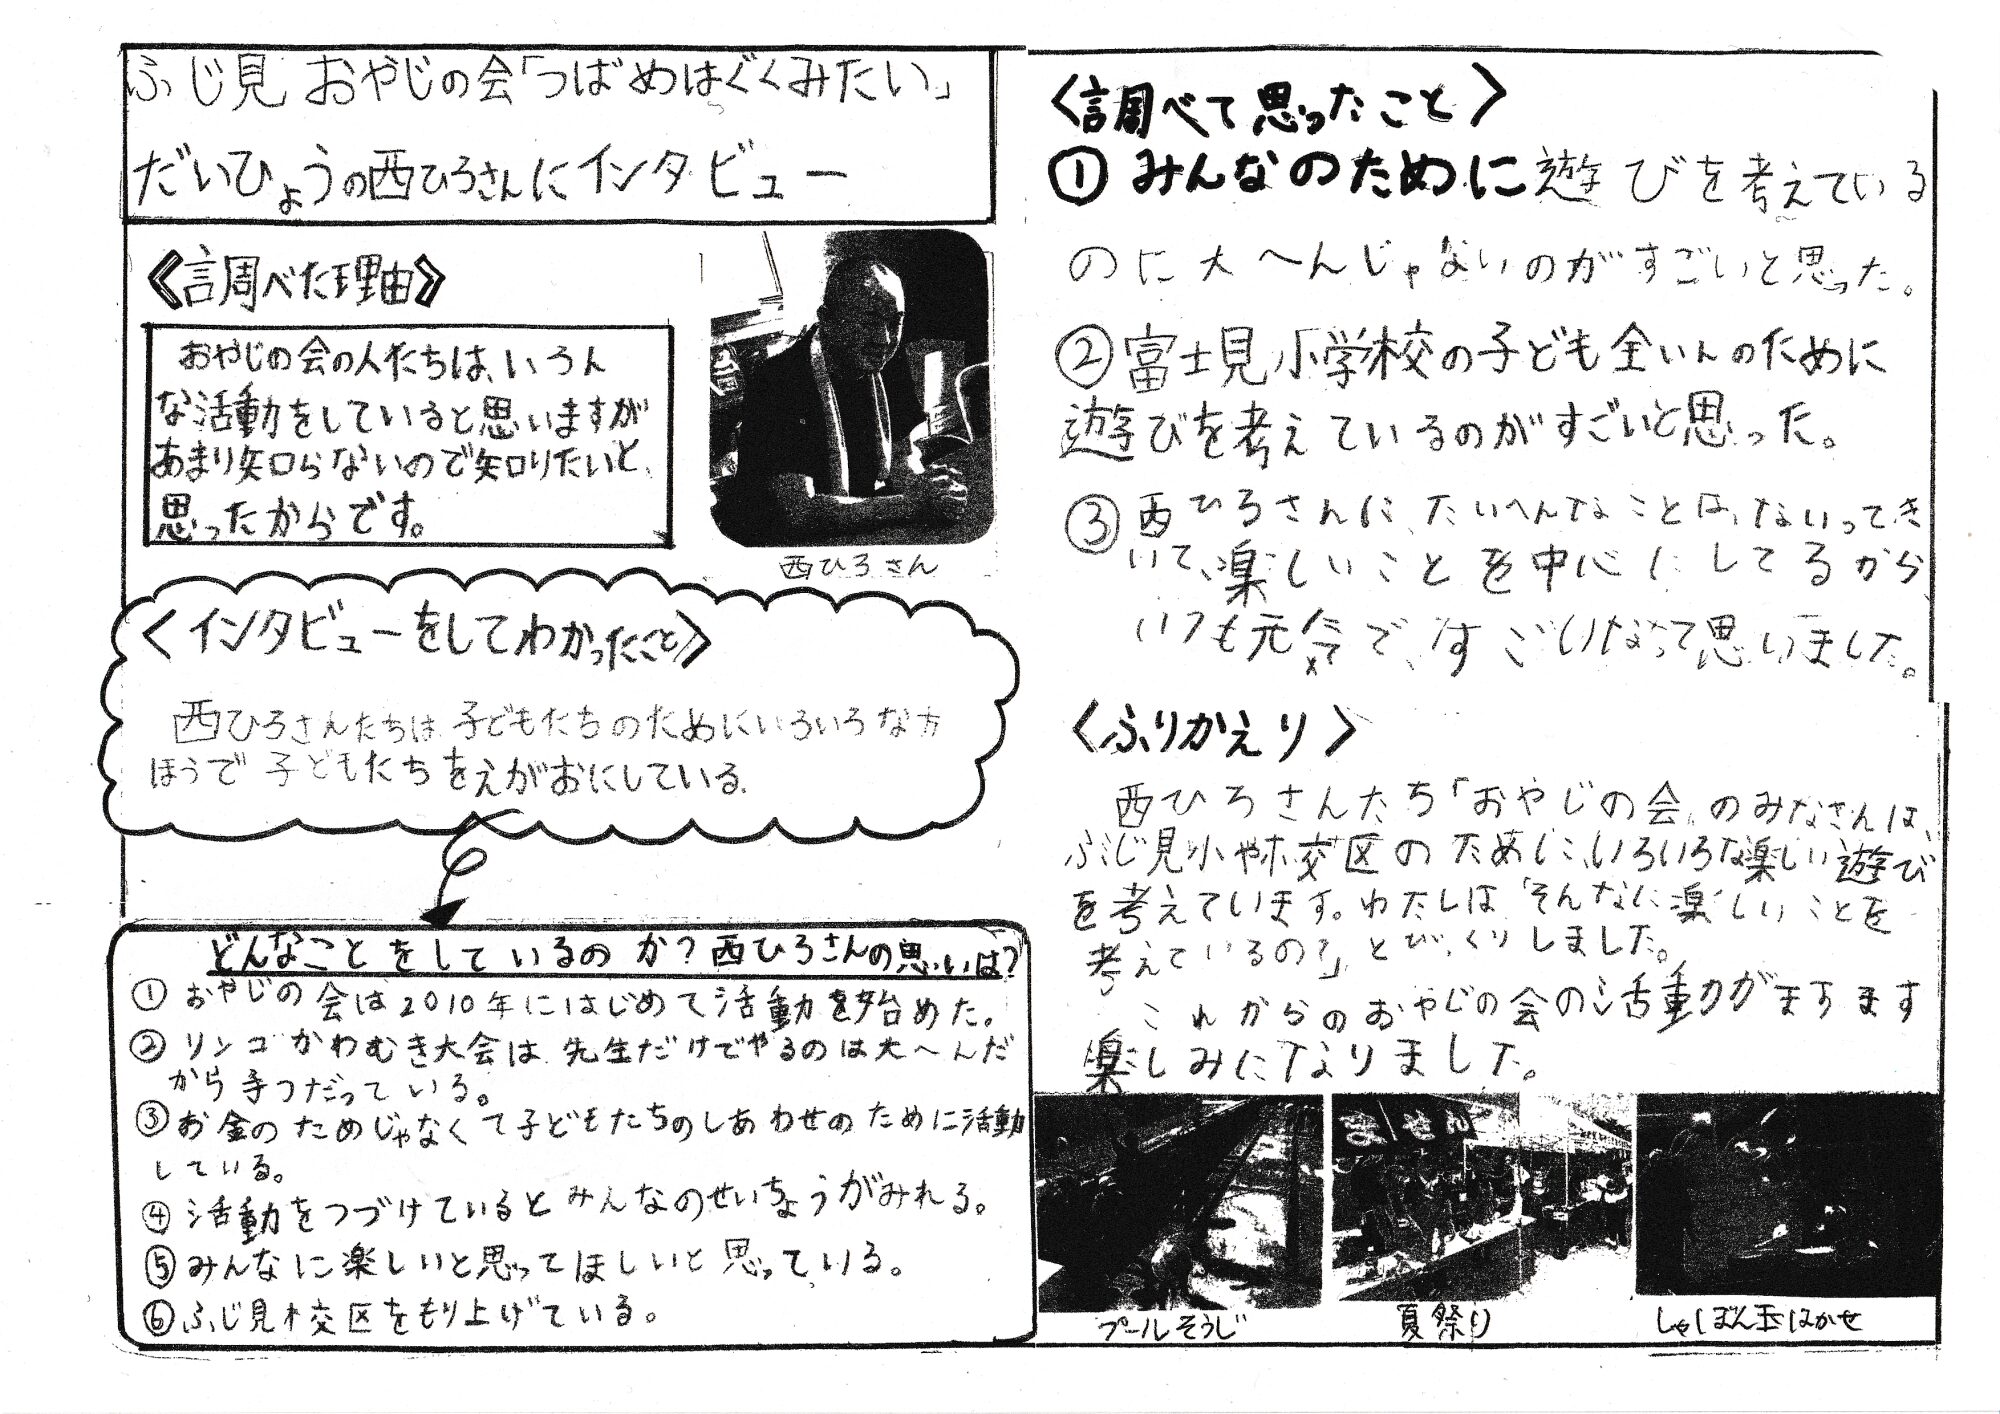 ふじ見おやじの会「つばめはぐくみたい」
だいひょうの西ひろさんにインタビュー
《調べた理由》
おやじの会の人たちは、いろん
な活動をしていると思いますが
あまり知らないので知りたいと、
思ったからです。
西ひろさん
〈インタビューをしてわかったこと〉
西ひろさんたちは子どもたちのためにいろいろな方
ほうで子どもたちをえがおにしている。
どんなことをしているのか?西ひろさんの思いは?
①おやじの会は2010年にはじめて活動を始めた。
②リンゴかわむき大会は先生だけでやるのは大へんだ
から手つだっている。
③お金のためじゃなくて子どもたちのしあわせのために活動
している。
④活動をつづけているとみんなのせいちょうがみれる。
⑤みんなに楽しいと思ってほしいと思っている。
⑥ふじ見校区をもり上げている。
〈調べて思ったこと〉
①みんなのために遊びを考えている
のに大へんじゃないのがすごいと思った。
②富士見小学校の子ども全いんのために
遊びを考えているのがすごいと思った。
③西ひろさんに、たいへんなことは、ないってき
いて、楽しいことを中心にしてるから
いつも元気で、すごいなって思いました。
〈ふりかえり〉
西ひろさんたち「おやじの会」のみなさんは、
ふじ見小や校区のために、いろいろな楽しい遊び
を考えています。わたしは「そんなに楽しいことを
考えているの?」とびっくりしました。
これからのおやじの会の活動がますます
楽しみになりました。
プールそうじ
夏祭り
しゃぼん玉はかせ